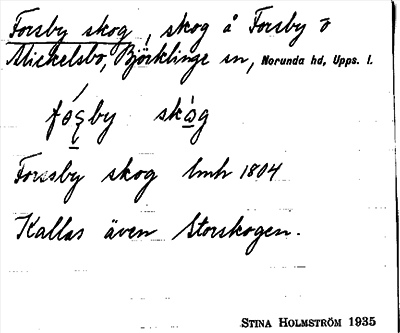 Forsby skog, skog å Forsby o
Mickelsbo, Björklinge sn, Norunda hd, Upps. l.
skog
Foresby skog lmh 1804
Kallas även Storskogen.
STINA HOLMSTRÖM 1935